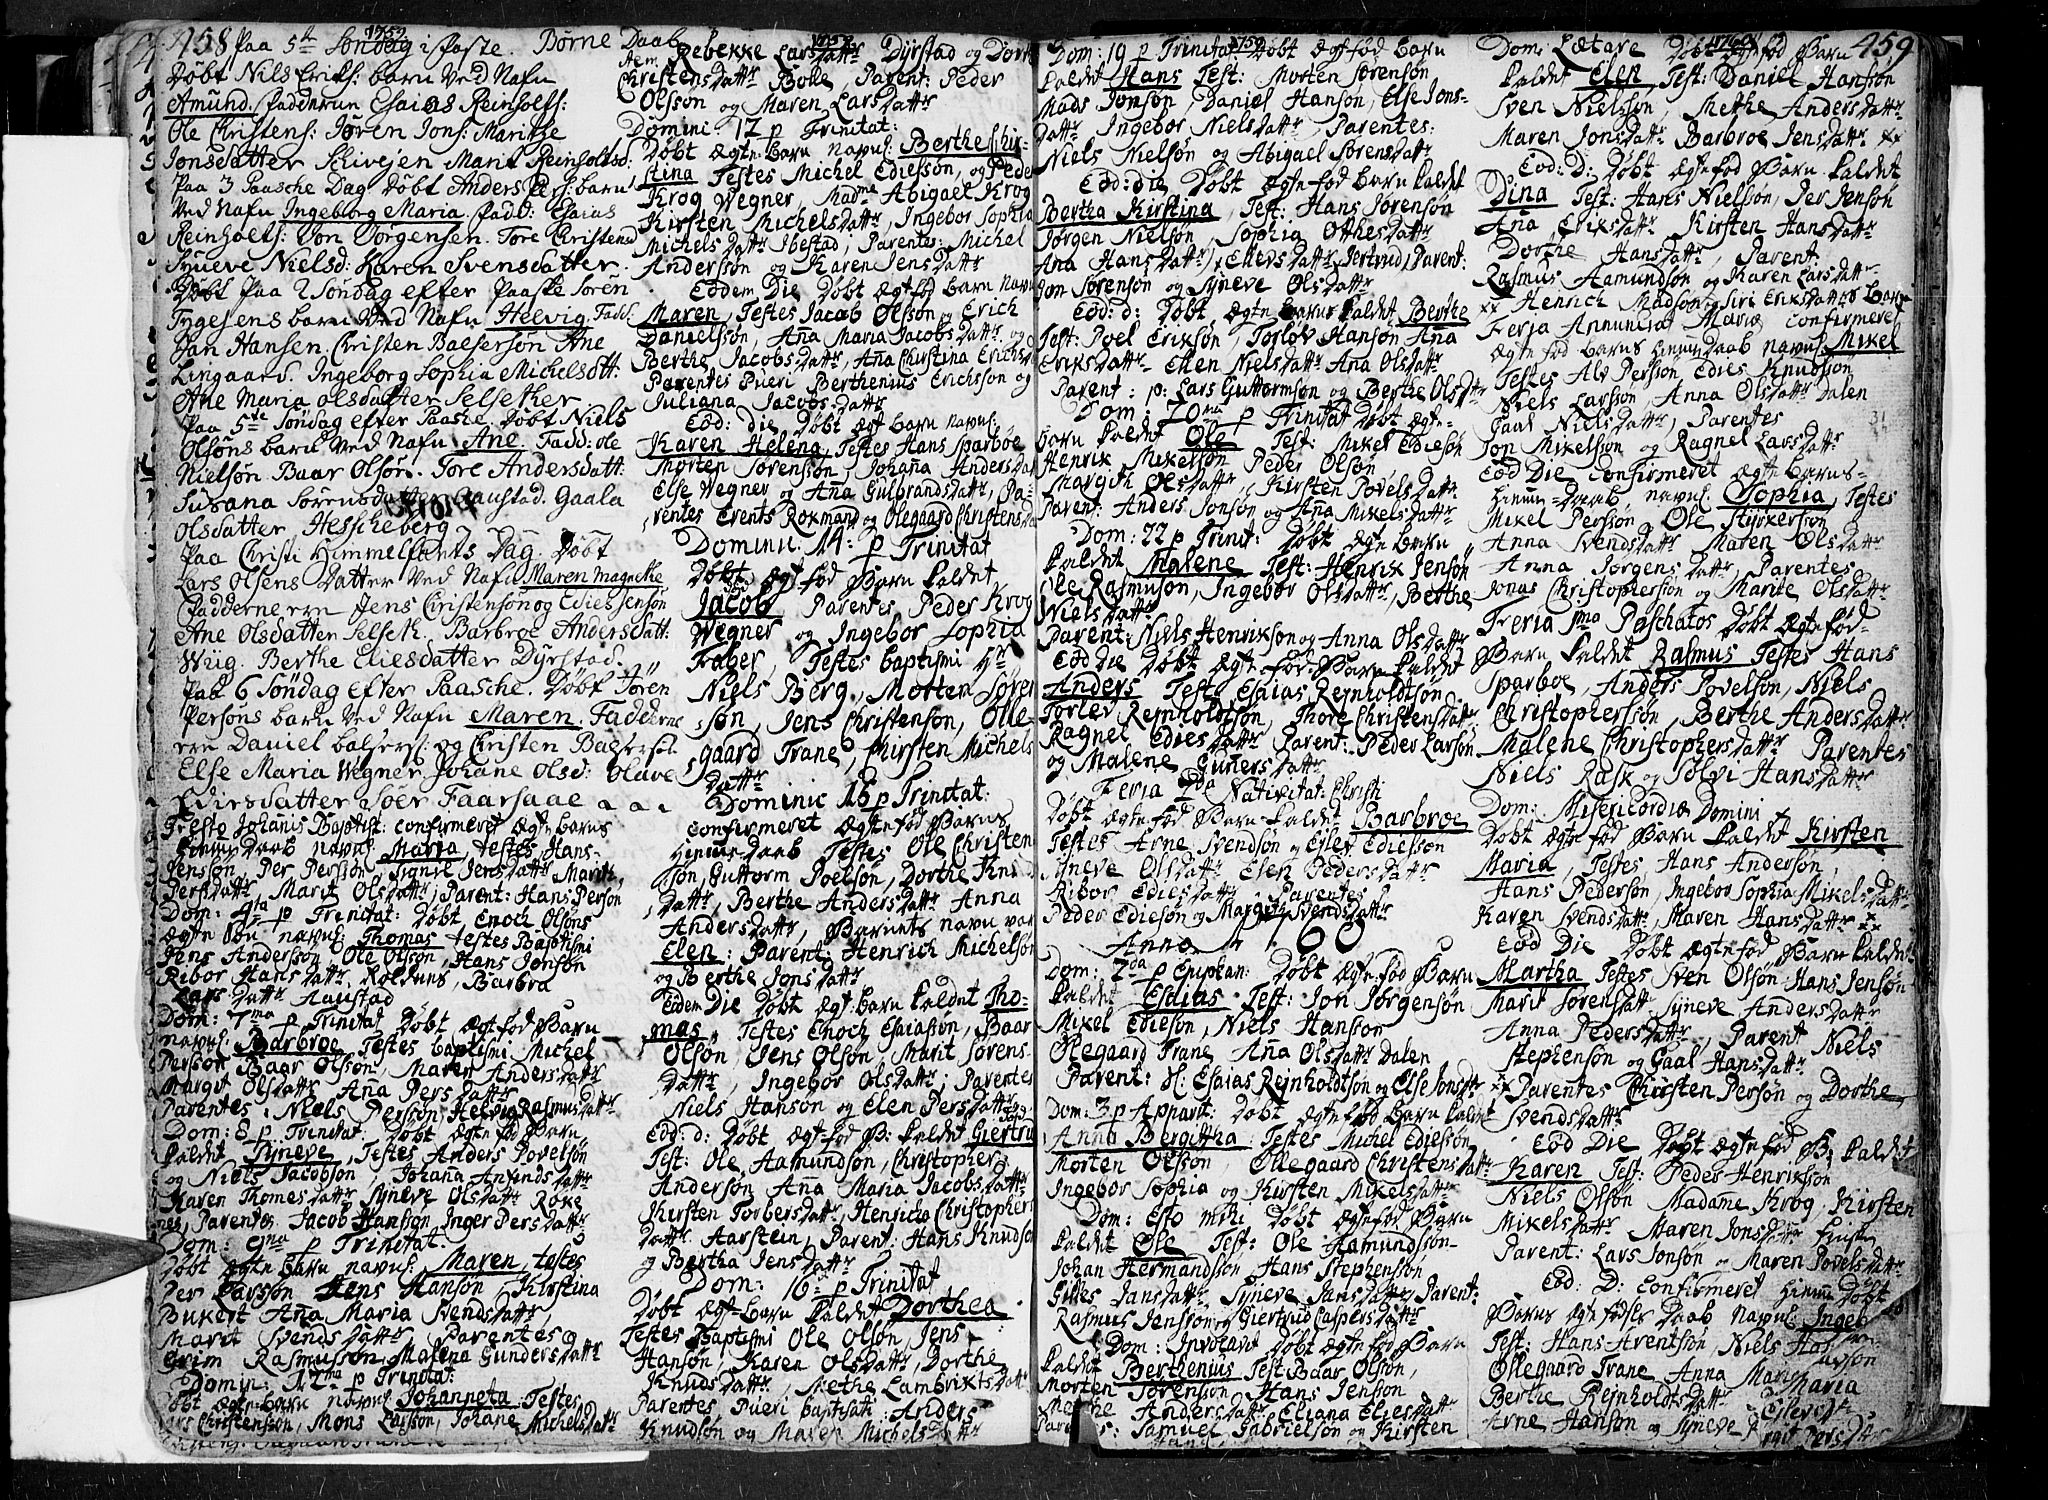 458 Paa 5te Søndag i Faste. 1759
Døbt Nils Eriks: barn Ved Nafn
Amund. Fadderne Esaias Reinholts:
Ole Christens: Søren Jons: Maritze
Jonsdatter Marit Reinholtsd:
Paa 3 Paasche Dag Døbt Anders Pers: barn
Ved Nafn Ingeborg Maria. Fadd: Esaias
Reinholts: Jon Jørgensen. Tore Christensd
Syneve Nielsd: Karen Svensdatter.
Døbt Paa 2 Søndag efter Paaske Søren
Ingesens barn Ved Nafn Helvig. Fadd:
Jan Hansen. Christen Balsersøn Ane
Lingaard. Ingeborg Sophia Michelsdtt.
Ane Maria olsdatter Selseth
Paa 5te Søndag efter Paasche Døbt Niels
Olsøns barn Ved Nafn Ane. Fadd: Ole
Nielsøn. Baar Olsøn. Tore Andersdatt:
Susana Sørensdatter Gaala
Olsdatter Hesscheberg
Paa Christi Himmelfarts Dag. Døbt
Lars Olsens Datter Ved Nafn Maren Magrethe
Fadderne ere Jens Christensøn og Edies Jensøn
Ane Olsdatter Selseth. Barbroe Andersdatt:
Wiig. Berthe Eliesdatter Dyrstad.
Paa 6 Søndag efter Paasche. Døbt Søren
Persøns barn Ved Nafn Maren. Fadderne
ere Daniel balsers: og Christen Balsersøn
Else Maria Wegner. Johane Olsd: Olave
Ediesdatter
Festo Johanis Baptist: confirmeret Ægte barns
hiemmedaab navnl: Maria testes Hans
Jensøn, Per Persøn, Signie Jensdattr Marit
Persdattr, Marit Olsdattr; Parent: Hans Persøn
Dom: 4ta p Trinitat: Døbt Enoch Olsøns
ægte søn navnl: Thomas testes Baptismi
Jens Andersøn, Ole Olsøn, Hans Jonsøn
Ribor Hansdattr Roldnes, Barbra
Larsdattr Aanstad
Dom: 7ma p Trinitat Døbt ægtefød Barn
navnl: Barbroe Testes baptismi Michel
Persøn Baar Olssøn, Maren Andersdattr
Margit Olsdattr Ana Persdattr
Parentes, Niels Persøn, Helvig Rasmusdattr
Dom: 8 p Trinitat. Døbt ægte fød Barn
kaldet Syneve, Testes Anders Povelsøn
og Niels Jacobsøn, Johana Anfindsdattr
Karen Thomesdattr Syneve Olsdattr Roke
nes, Parentes Jacob Hanssøn Inger Persdattr
Dom: 9na p Trinitat.
Døbt ægte barn navnl: Maren, testes
Per Larssøn Jens Hansøn Kirstina
Bukert Ana Maria Svendsdattr,
Maret Svendsdattr, Parentes
Grim Rasmussøn, Malena Gundersdattr
Domin: 12ma p Trinitat:
Døbt ægte barn navnl: Johanneta: Testes
Lars Christensøn, Mons Larssøn, Johane Michelsdattr
Børne Daab 1759
Rebekke Larsdattr Dyrstad og Dorthe
Christensdattr Bolle, Parent: Peder
Olssøn og Maren Larsdattr
Domini: 12 p Trinitat:
Døbt ægte barn navnl: Berthe Chir-
stina Testes Michel Ediessøn, og Peder
Krog Wegner, Madme Abigael Krog
Kirsten Michelsdattr, Ingebor Sophia
Michelsdattr Ibestad; Parentes: Michel
Anderssøn og Karen Jensdattr
Eodem Die Døbt ægtefød barn navnl
Maren, Testes Jacob Olssøn og Erich
Danielssøn, Ana Maria Jacobsdattr, og
Berthe Jacobsdattr, Ana Christina Erichsd
Parentes Pueri Berthenius Erichssøn og
Juliana Jacobsdattr
Eod: die Døbt ægt barn navnl:
Karen Helena, Testes Hans Sparboe
Morten Sørenssøn, Johana Andersdat
Else Wegner og Ana Gulbrandsdattr, Pa-
rentes Erents Rokmand og Olegaard Christensd
Dominii: 14: p Trinitat
Døbt ægtefød Barn kaldet
Jacob Parentes, Peder Krog
Wegner og Ingebor Sophia
Traber, Testes baptismi Hr
Niels Berg, Morten Søren
søn, Jens Christensøn, Olle-
gaard Trane, Chirsten Michels
dattr
Dominic 15 p Trinitat:
confirmeret ægtefød Barns
Hiemme-daab Testes Ole Christen
søn, Guttorm Poelsøn, Dorthe Knuds
dattr, Berthe Andersdattr Anna
Andersdattr, Barnets navn var
Elen: Parent: Henrich Michelsøn
og Berthe Jonsdattr
Eodem Die Døbt ægt: barn kaldet Tho-
mas, Testes Enoch Esaiasøn, Baar
Olsøn Jens Olsøn, Marit Sørens-
dattr, Ingebor Olsdattr; Parentes
Niels Hansøn og Elen Persdattr
Eod: d: Døbt ægtefød B: kaldet Giertru
Test: Ole Aamundsøn, Christopher
Andersøn Ana Maria Jacobsdattr
Kirsten Torbersdattr, Henricha Christophers
dattr Aarstein, Parent: Hans Knudsøn
og Bertha Jensdattr
Dom: 16 p Trinitat
Døbt ægt-barn kaldet Dorthea
Testes Baptismi Ole Olsøn, Jens
Hansøn, Karen Olsdattr, Dorthe
Knudsdattr, Methe Lambriktsdattr
Parentes Pueri baptisati: Anders
Knudsøn og Maren Michelsdattr
Dom: 19 p Trinitat: 1759 Døbt ægtefød barn
kaldet Hans Test: Morten Sørensøn
Mads Jonsøn, Daniel Hansøn, Else Jons-
dattr Ingebor Nielsdattr, Parentes:
Niels Nielsøn og Abigael Sørensdattr
Eod: die Døbt ægtefød barn kaldet
Bertha Kirstina, Test: Hans Sørensøn
Jørgen Nielsøn, Sophia Otthesdattr
Ana Hansdattr, Ellevsdattr Giertrud, Parent:
Jon Sørensøn og Syneve Olsdattr
Eod: d: Døbt ægte barn kaldet Berthe
Test: Poel Eriksøn, Torløv Hansøn Ana
Eriksdattr Ellen Nielsdattr Ana Olsdattr
Parent: p: Lars Guttormsøn og Berthe Olsdttr
Dom: 20ma p Trinitat Døbt ægte-
barn kaldet Ole Test: Mikel Ediesøn
Henrik Mikelsøn Peder Olsøn,
Margith Olsdattr, Kirsten Povelsdattr
Parent: Anders Jonsøn og Ana Mikelsdattr
Dom: 22 p Trinit: Døbt ægte barn
kaldet Malene Test: Henrik Jensøn
Ole Rasmusøn, Ingebor Olsdattr, Berthe
Nielsdattr
Parent: Niels Henriksøn og Anna Olsdattr
Eod Die Døbt ægte-fød-Barn kaldet
Anders Test: Esaias Rejnholdtsøn
Torlev Rejnholdtsøn, Thore Christensdattr
Ragnel Ediesdattr Parent: Peder Larsøn
og Malene Gunersdattr
Feria 2da Nativitat: Christi
Døbt ægtefød Barn kaldet Barbroe
Testes Arne Svendsøn og Eslev Ediessøn
Syneve Olsdattr Elen Pedersdattr
Ribor Ediesdattr Parentes
Peder Ediesøn og Margith Svendsdattr
Anno 1760
Dom: 2da p Epiphan: Døbt ægtefød Barn
kaldet Esaias. Test: Jon Jørgensøn
Mikel Ediesøn, Niels Hansøn
Olegaard Trane, Ana Olsdattr Dalen
Parent: Sl. Esaias Rejnholdtsøn og Else Jonsdttr
Dom: 3 p Døbt ægtefød barn kaldet
Anna Bergittha: Testes Michel Ediessøn
Morten Olssøn, Ollegaard Christensdattr
Ingebor Sophia og Kirsten Mikelsdattr
Dom: Esto mihi Døbt ægtefød Barn
kaldet Ole Test: Ole Aamundsøn
Johan Hermandsøn, Hans Stephensøn
Gilles Jansdattr, Syneve Jansdattr Parent:
Rasmus Jenssøn og Giertrud Caspersdattr
Dom: Invocavit Døbt ægtefød Barn
kaldet Berthenius Test: Baar Olsøn,
Morten Sørensøn Hans Jensøn
Marthe Andersdattr, Eliana Eliesdattr
Parentes: Samuel Gabrielsøn og Kirsten
Dom: Lætare 1760 Døbt ægtefød Barn 459
kaldet Elen, Test: Daniel Hansøn
Sven Nielsøn, Methe Andersdattr
Maren Jonsdattr Barbroe Jensdattr xx
Eod: D: Døbt ægtefød Barn kaldet
Dina Test: Hans Nielsøn, Per Jensøn
Ana, Eriksdattr Kirsten Hansdattr
Dorthe Hansdattr, Parent
Rasmus Aamundsøn og Karen Larsdattr
xx Henrich Madsøn og Siri Eriksdatters barn
Feria Annuntiat Mariæ confirmeret
ægte fød barns hiemmedaab navnl: Mikel
Testes Alv Persøn Edies Knudsøn
Niels Larssøn, Anna Olsdattr Dalen
Gaal Nielsdattr, Parentes
Jon Mikelsøn og Ragnel Larsdattr
Eod Die confirmeret ægte barns-
hiemme-daab navnl: Sophia, Testes
Mikel Perssøn Ole Styrkersøn
Anna Svendsdattr Maren Olsdattr
Anna Jørgensdattr, Parentes
Jonas Christophersøn og Marite Olsdattr
Feria 1ma Paschatos Døbt ægtefød-
Barn kaldet Rasmus Testes Hans
Sparboe, Anders Povelsøn, Niels
Christopherssøn, Berthe Andersdattr
Malene Christophersdattr Parentes
Niels Rask og Sølvi Hansdattr
Dom: Misericordia Domini
Døbt ægte fød Barn kaldet Kirsten
Maria, Testes, Hans Andersøn,
Hans Pedersøn, Ingebor Sophia Mikelsdattr
Karen Svendsdattr, Maren Hansdattr xx
Eod Die Døbt ægtefød Barn kaldet
Martha Testes Sven Olsøn Hans Jensøn
Marit Sørensdattr Syneve Andersdattr
Anna Pedersdattr, Parent Niels
Stephensøn og Gaal Hansdattr
xx Parentes Chirsten Persøn og Dorthe
Svendsdattr
Eod Die, Døbt ægtefød B: kaldet
Karen Test: Peder Henriksøn
Niels Olsøn Madame Krog, Kirsten
Mikelsdattr Maren Jonsdattr
Parent: Lars Jonsøn og Maren Povelsdattr
Eod: D: confirmeret hiemme Døbt
Barns ægtefødes Daab navnl: Ingeb
Test: Hans Arentsøn, Niels Has
Ollegaard Trane Anna Marie
Berthe Rejnholdtsdattr Maria
Arne Hansøn og Syneve